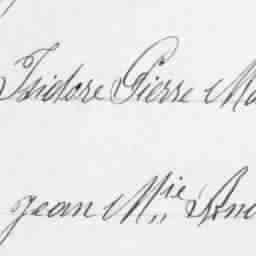 Isidore Pierre Ma
Jean M.ie And